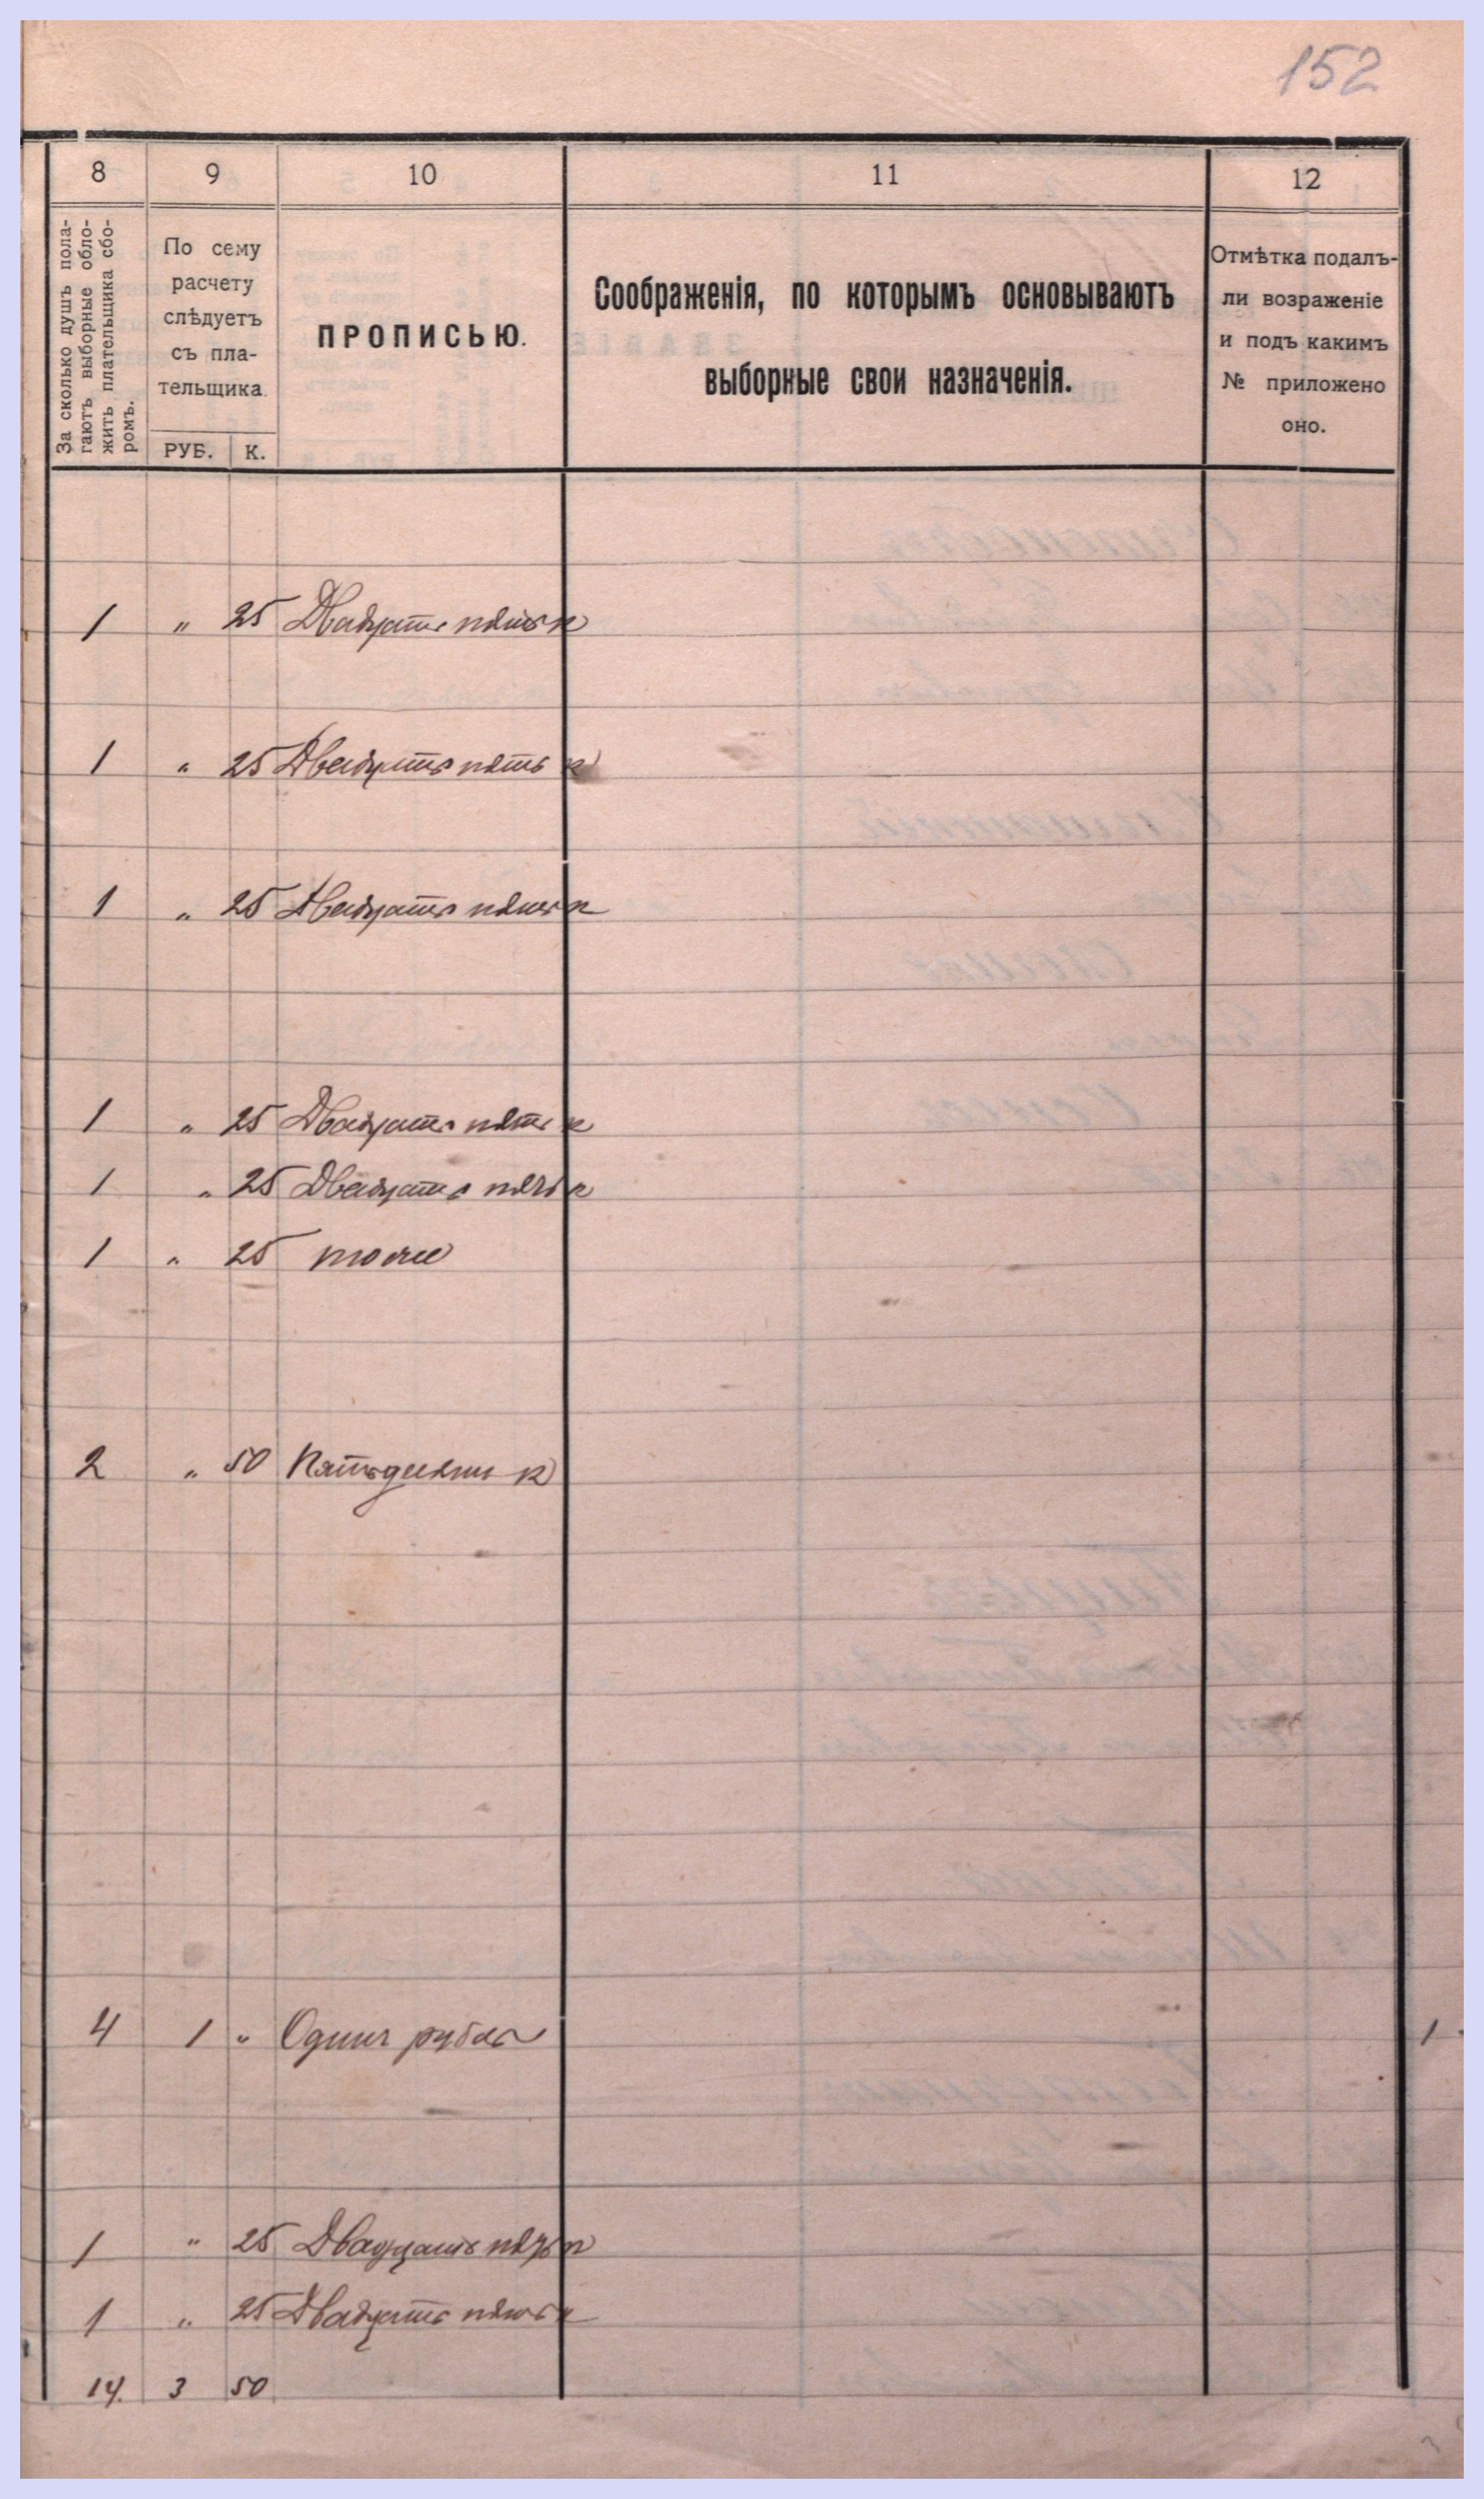 152
8 9 10 11 12
За сколько душъ пола-
гаютъ выборные обло-
жить плательщика сбо-
ромъ.
По сему
расчету
слѣдуетъ
съ пла-
тельщика.
РУБ. К.
ПРОПИСЬЮ.
Соображенія, по которымъ основываютъ
выборные свои назначенія.
Отмѣтка подалъ-
ли возраженіе
и подъ какимъ
№ приложено
оно.
1 " 25 Двадцать пять к
1 " 25 Двадцать пять к
1 " 25 Двадцать пять к
1 " 25 Двадцать пять к
1 " 25 Двадцать пять к
1 " 25 тоже
2 " 50 Пятьдесят к
4 1 " Один рубль 1
1 " 25 Двадцать пять к
1 " 25 Двадцать пять к
14. 3 50